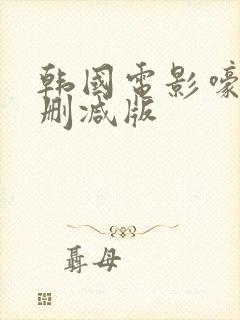 韩国电影嚎
删减版
聂母